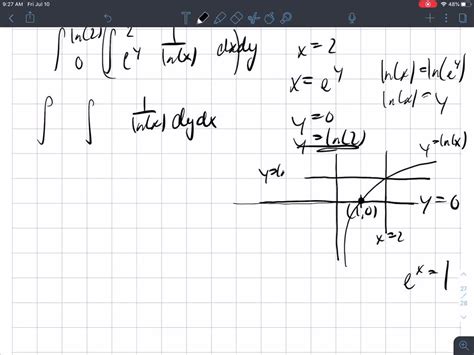 9:27 AM Fri Jul 10
48%
∫₀^ln(2) (∫_{e^y}^2 1/ln(x) dx)dy
x = 2
x = e^y
ln(x) = ln(e^y)
ln(x) = y
y = 0
y = ln(2)
∫ ∫ 1/ln(x) dy dx
y = ln(x)
(1,0)
y = 0
x = 2
e^x = 1
27
28